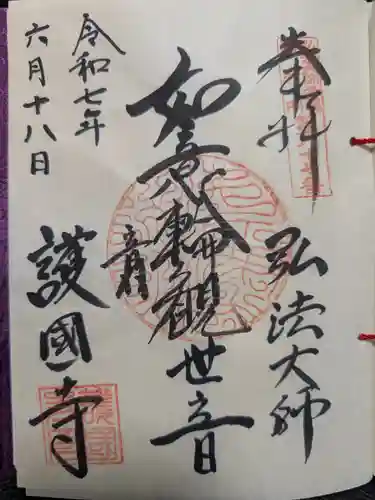 奉拝
弘法大師
如意輪観世音
音羽
護國寺
令和七年
六月十八日